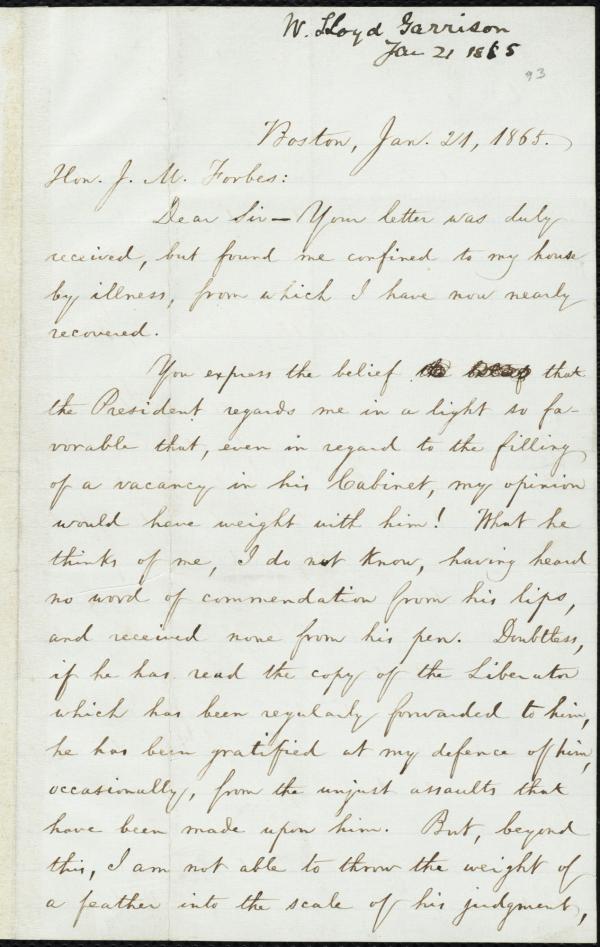 W. Lloyd Garrison
Jan 21 1865
93
Boston, Jan. 21, 1865.
Hon. J. M. Forbes:
Dear Sir — Your letter was duly
received, but found me confined to my house
by illness, from which I have now nearly
recovered.
You express the belief that
the President regards me in a light so fa-
vorable that, even in regard to the filling
of a vacancy in his Cabinet, my opinion
would have weight with him! What he
thinks of me, I do not know, having heard
no word of commendation from his lips,
and received none from his pen. Doubtless,
if he has read the copy of the Liberator
which has been regularly forwarded to him,
he has been gratified at my defence of him,
occasionally, from the unjust assaults that
have been made upon him. But, beyond
this, I am not able to throw the weight of
a feather into the scale of his judgment,